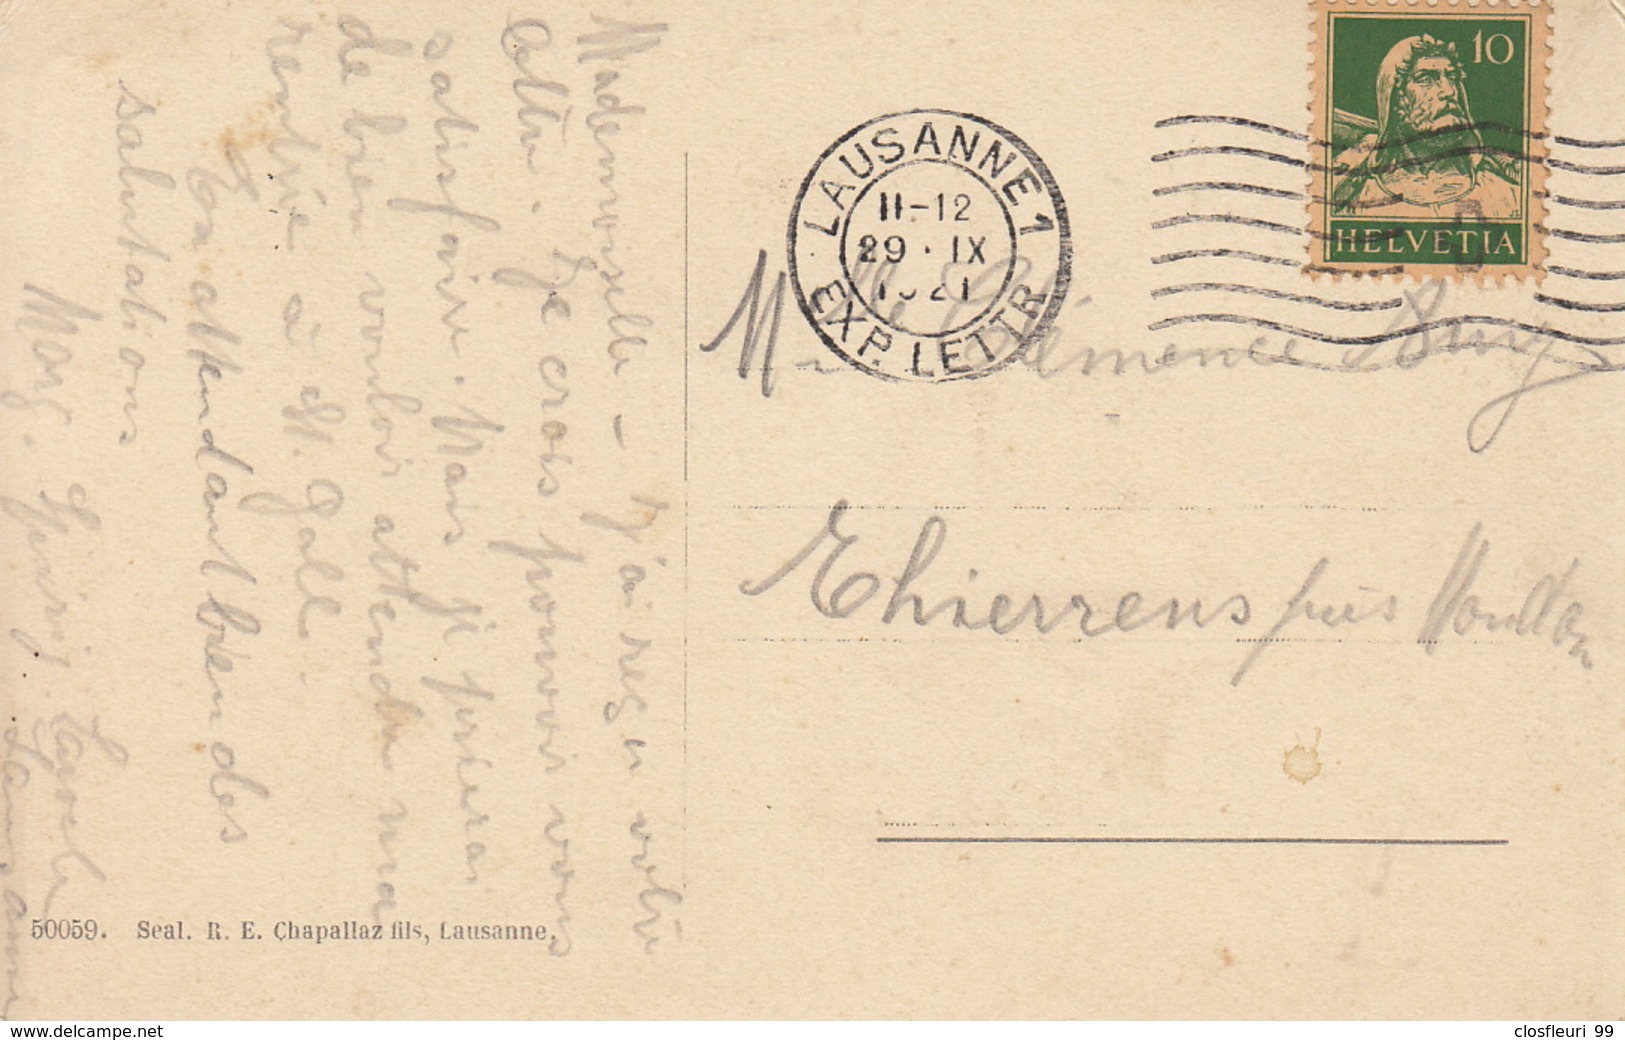 Mademoiselle – J'ai reçu votre
lettre. Je crois pouvoir vous
satisfaire. Mais je prierai
de bien vouloir attendre ma
rentrée à St. Gall.
En attendant bien des
salutations
Marg.
Lausanne
LAUSANNE 1
11-12
29 · IX
1921
EXP. LETTR.
10
HELVETIA
Mlle Clémence
Thierrens près Moudon
50059. Seal. R. E. Chapallaz fils, Lausanne.
www.delcampe.net
closfleuri 99